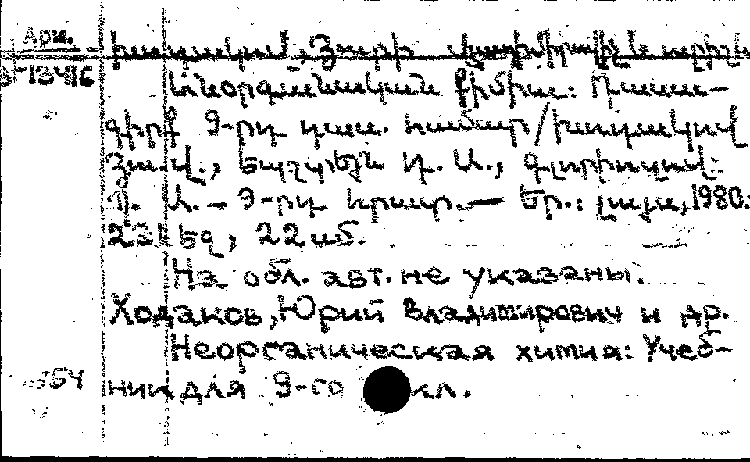 Арм.
Խոդակով, Յուրի Վլադիմիրովիչ և ուրիշն.
Անօրգանական քիմիա: Դասա-
գիրք 9-րդ դաս. համար/Խոդակով
Յու. Վ., Եպշտեյն Դ. Ա., Գլորիոզով
Պ. Ա. - 9-րդ հրատ. — Եր.: Լույս, 1980.
էջ, 22 սմ.
На обл. авт. не указаны.
Ходаков, Юрий Владимирович и др.
Неорганическая химия: Учеб-
ник для 9-го кл.